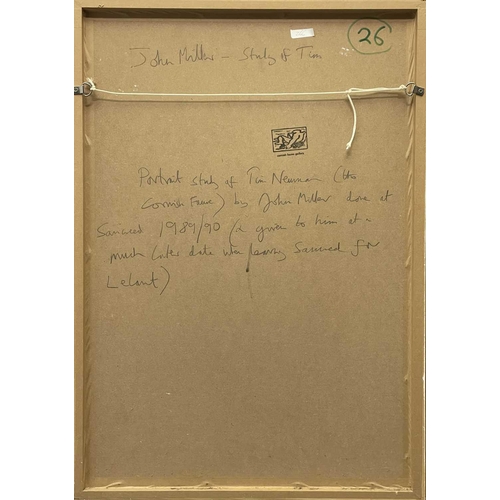 26
John Miller - Study of Tim
Portrait study of Tim Newman (the
Cornish Faun) by John Miller done at
Sancreed 1989/90 (& given to him at a
much later date when leaving Sancreed for
Lelant)